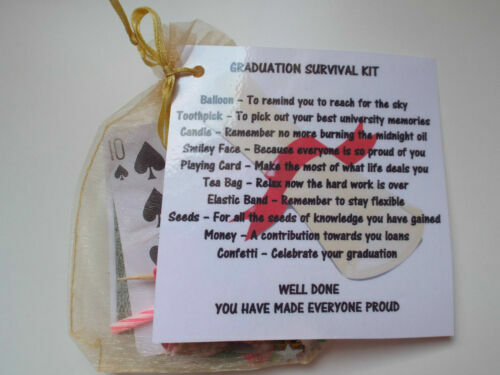 GRADUATION SURVIVAL KIT
Balloon – To remind you to reach for the sky
Toothpick – To pick out your best university memories
Candle – Remember no more burning the midnight oil
Smiley Face – Because everyone is so proud of you
Playing Card – Make the most of what life deals you
Tea Bag – Relax now the hard work is over
Elastic Band – Remember to stay flexible
Seeds – For all the seeds of knowledge you have gained
Money – A contribution towards you loans
Confetti – Celebrate your graduation
WELL DONE
YOU HAVE MADE EVERYONE PROUD
10